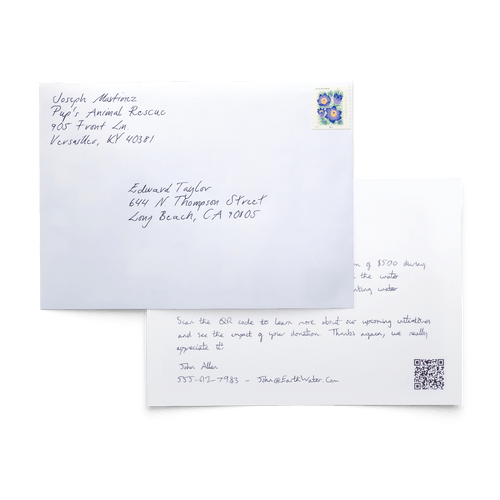 Joseph Martinez
Pup's Animal Rescue
905 Front Ln.
Versailles, KY 40381
Edward Taylor
644 N Thompson Street
Long Beach, CA 90805
of $500 during
the water
water
Scan the QR code to learn more about our upcoming initiatives
and see the impact of your donation. Thanks again, we really
appreciate it!
John Allen
555-612-7983 - John@EarthWater.Com